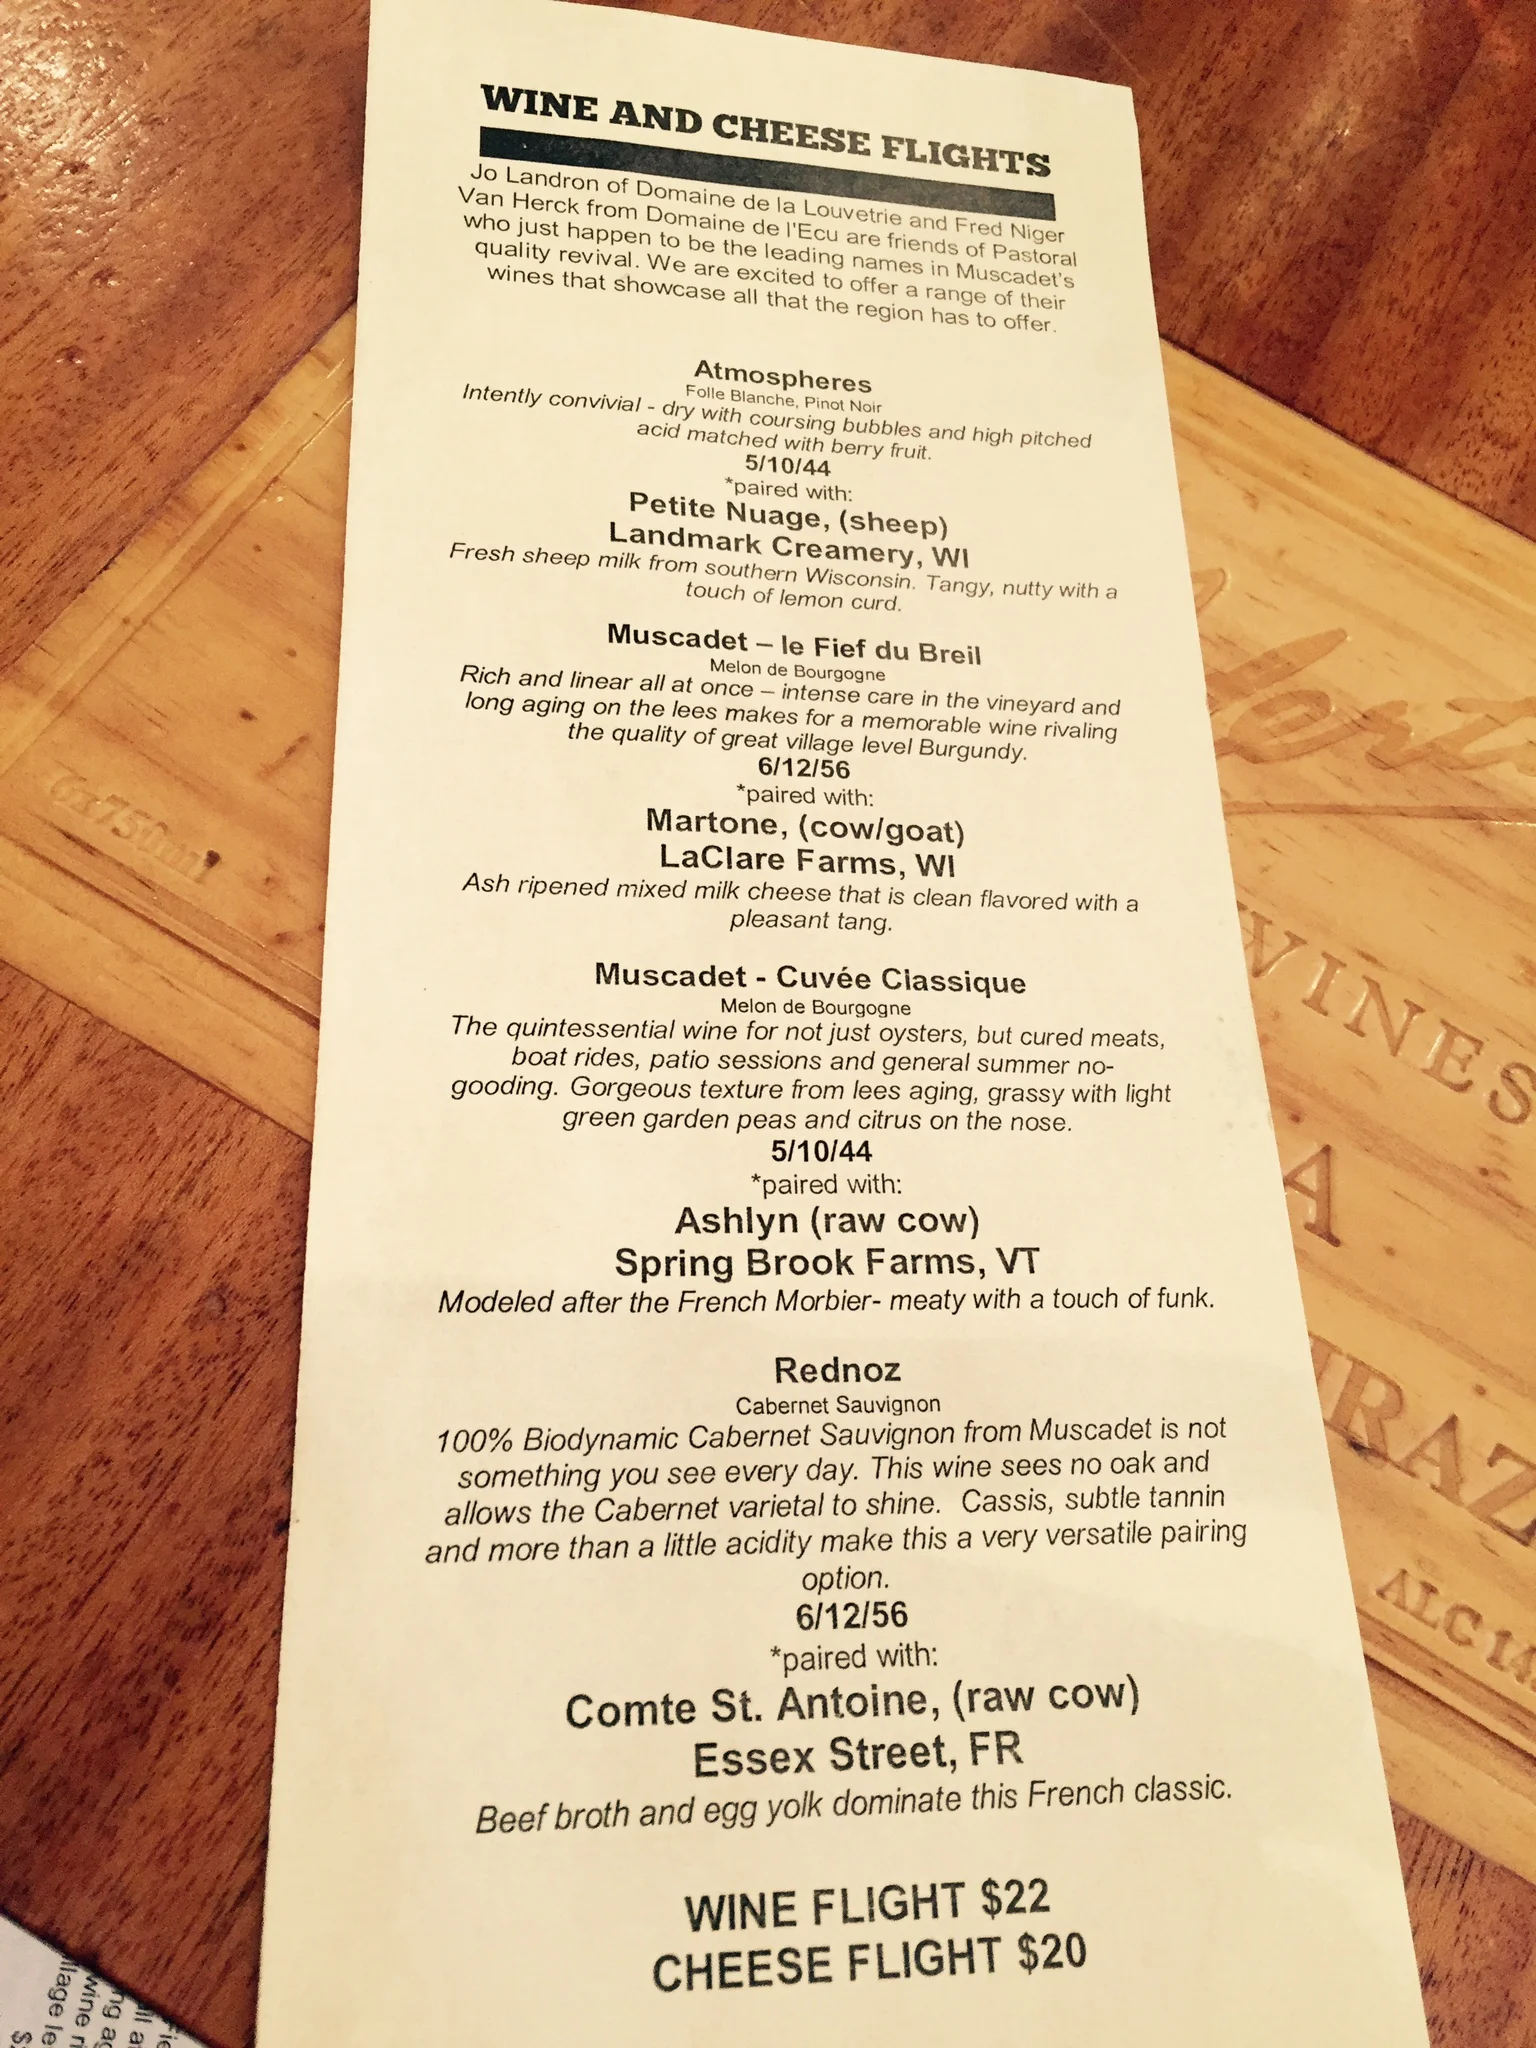 WINE AND CHEESE FLIGHTS
Jo Landron of Domaine de la Louvetrie and Fred Niger
Van Herck from Domaine de l'Ecu are friends of Pastoral
who just happen to be the leading names in Muscadet's
quality revival. We are excited to offer a range of their
wines that showcase all that the region has to offer.
Atmospheres
Folle Blanche, Pinot Noir
Intently convivial - dry with coursing bubbles and high pitched
acid matched with berry fruit.
5/10/44
*paired with:
Petite Nuage, (sheep)
Landmark Creamery, WI
Fresh sheep milk from southern Wisconsin. Tangy, nutty with a
touch of lemon curd.
Muscadet – le Fief du Breil
Melon de Bourgogne
Rich and linear all at once – intense care in the vineyard and
long aging on the lees makes for a memorable wine rivaling
the quality of great village level Burgundy.
6/12/56
*paired with:
Martone, (cow/goat)
LaClare Farms, WI
Ash ripened mixed milk cheese that is clean flavored with a
pleasant tang.
Muscadet - Cuvée Classique
Melon de Bourgogne
The quintessential wine for not just oysters, but cured meats,
boat rides, patio sessions and general summer no-
gooding. Gorgeous texture from lees aging, grassy with light
green garden peas and citrus on the nose.
5/10/44
*paired with:
Ashlyn (raw cow)
Spring Brook Farms, VT
Modeled after the French Morbier- meaty with a touch of funk.
Rednoz
Cabernet Sauvignon
100% Biodynamic Cabernet Sauvignon from Muscadet is not
something you see every day. This wine sees no oak and
allows the Cabernet varietal to shine. Cassis, subtle tannin
and more than a little acidity make this a very versatile pairing
option.
6/12/56
*paired with:
Comte St. Antoine, (raw cow)
Essex Street, FR
Beef broth and egg yolk dominate this French classic.
WINE FLIGHT $22
CHEESE FLIGHT $20
6x750ml
WINES
A
ALC 14